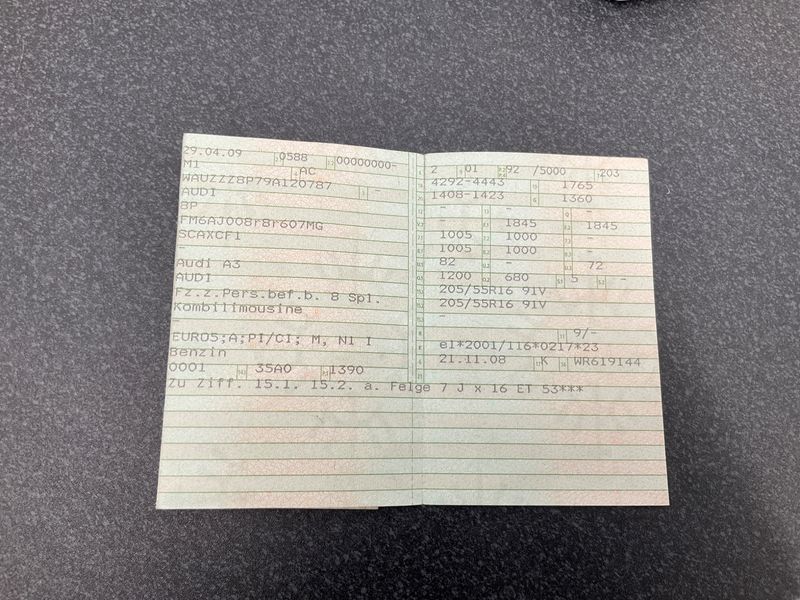 29.04.09 0588 00000000-
M1 AC
WAUZZZ8P79A120787 -
AUDI
8P
FM6AJ008r8r607MG
SCAXCF1
-
Audi A3
AUDI
Fz.z.Pers.bef.b. 8 Spl.
Kombilimousine
-
EURO5;A;PI/CI; M, N1 I
Benzin
0001 35A0 1390
Zu Ziff. 15.1. 15.2. a. Felge 7 J x 16 ET 53***
2 01 92 /5000 203
4292-4443 1765
1408-1423 1360
- - -
- 1845 1845
1005 1000 -
1005 1000 -
82 - 72
1200 680 5 -
205/55R16 91V
205/55R16 91V
-
9/-
e1*2001/116*0217*23
21.11.08 K WR619144